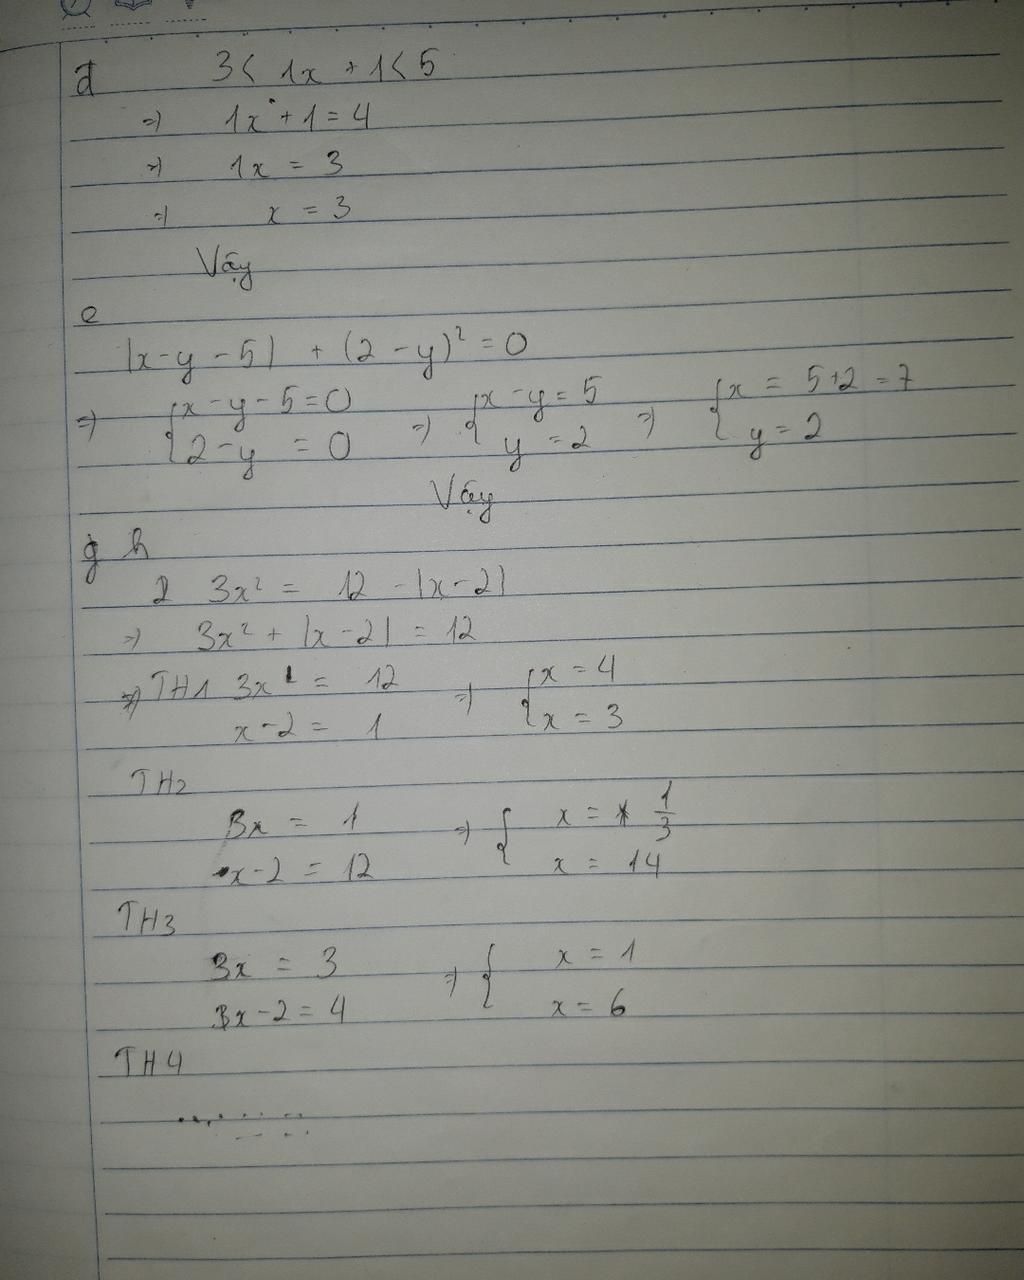 d 3 < 1x + 1 < 5
=> 1x + 1 = 4
=> 1x = 3
=> x = 3
Vậy
e
|x - y - 5| + (2 - y)² = 0
=> { x - y - 5 = 0 => { x - y = 5 => { x = 5 + 2 = 7
2 - y = 0 y = 2 y = 2
Vậy
g h
2 3x² = 12 - |x - 2|
=> 3x² + |x - 2| = 12
=> TH1 3x = 12 => { x = 4
x - 2 = 1 x = 3
TH2
3x = 1 => { x = 1/3
x - 2 = 12 x = 14
TH3
3x = 3 => { x = 1
x - 2 = 4 x = 6
TH4